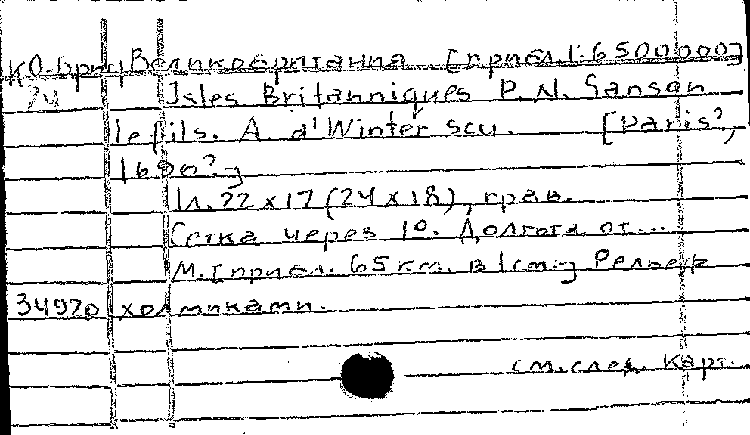 КО-Бри Великобритания [прибл. 1:6500000]
24 Isles Britanniques P. N. Sanson
le fils. A. d'Winter scu. [Paris?,
1690?]
1л. 22 x 17 (24 x 18), грав.
Сетка через 1°. Долгота от...
М. [прибл. 65 км. в 1 см.] Рельеф
34970 холмиками.
см. след. карт.